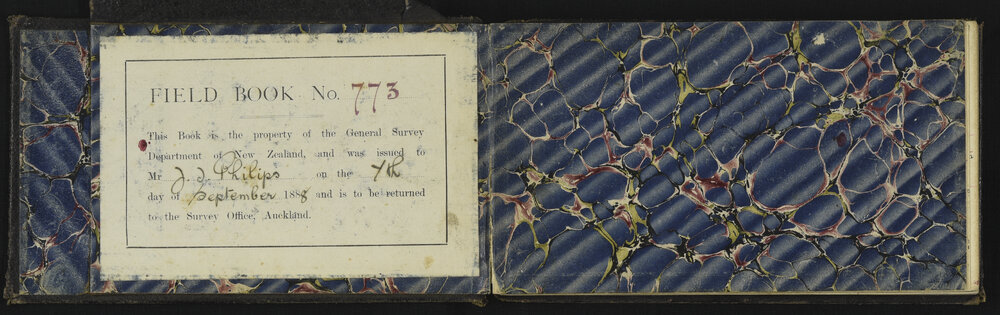 FIELD BOOK No. 773
This Book is the property of the General Survey
Department of New Zealand, and was issued to
Mr J. J. Philips on the 7th
day of September 1888 and is to be returned
to the Survey Office, Auckland.